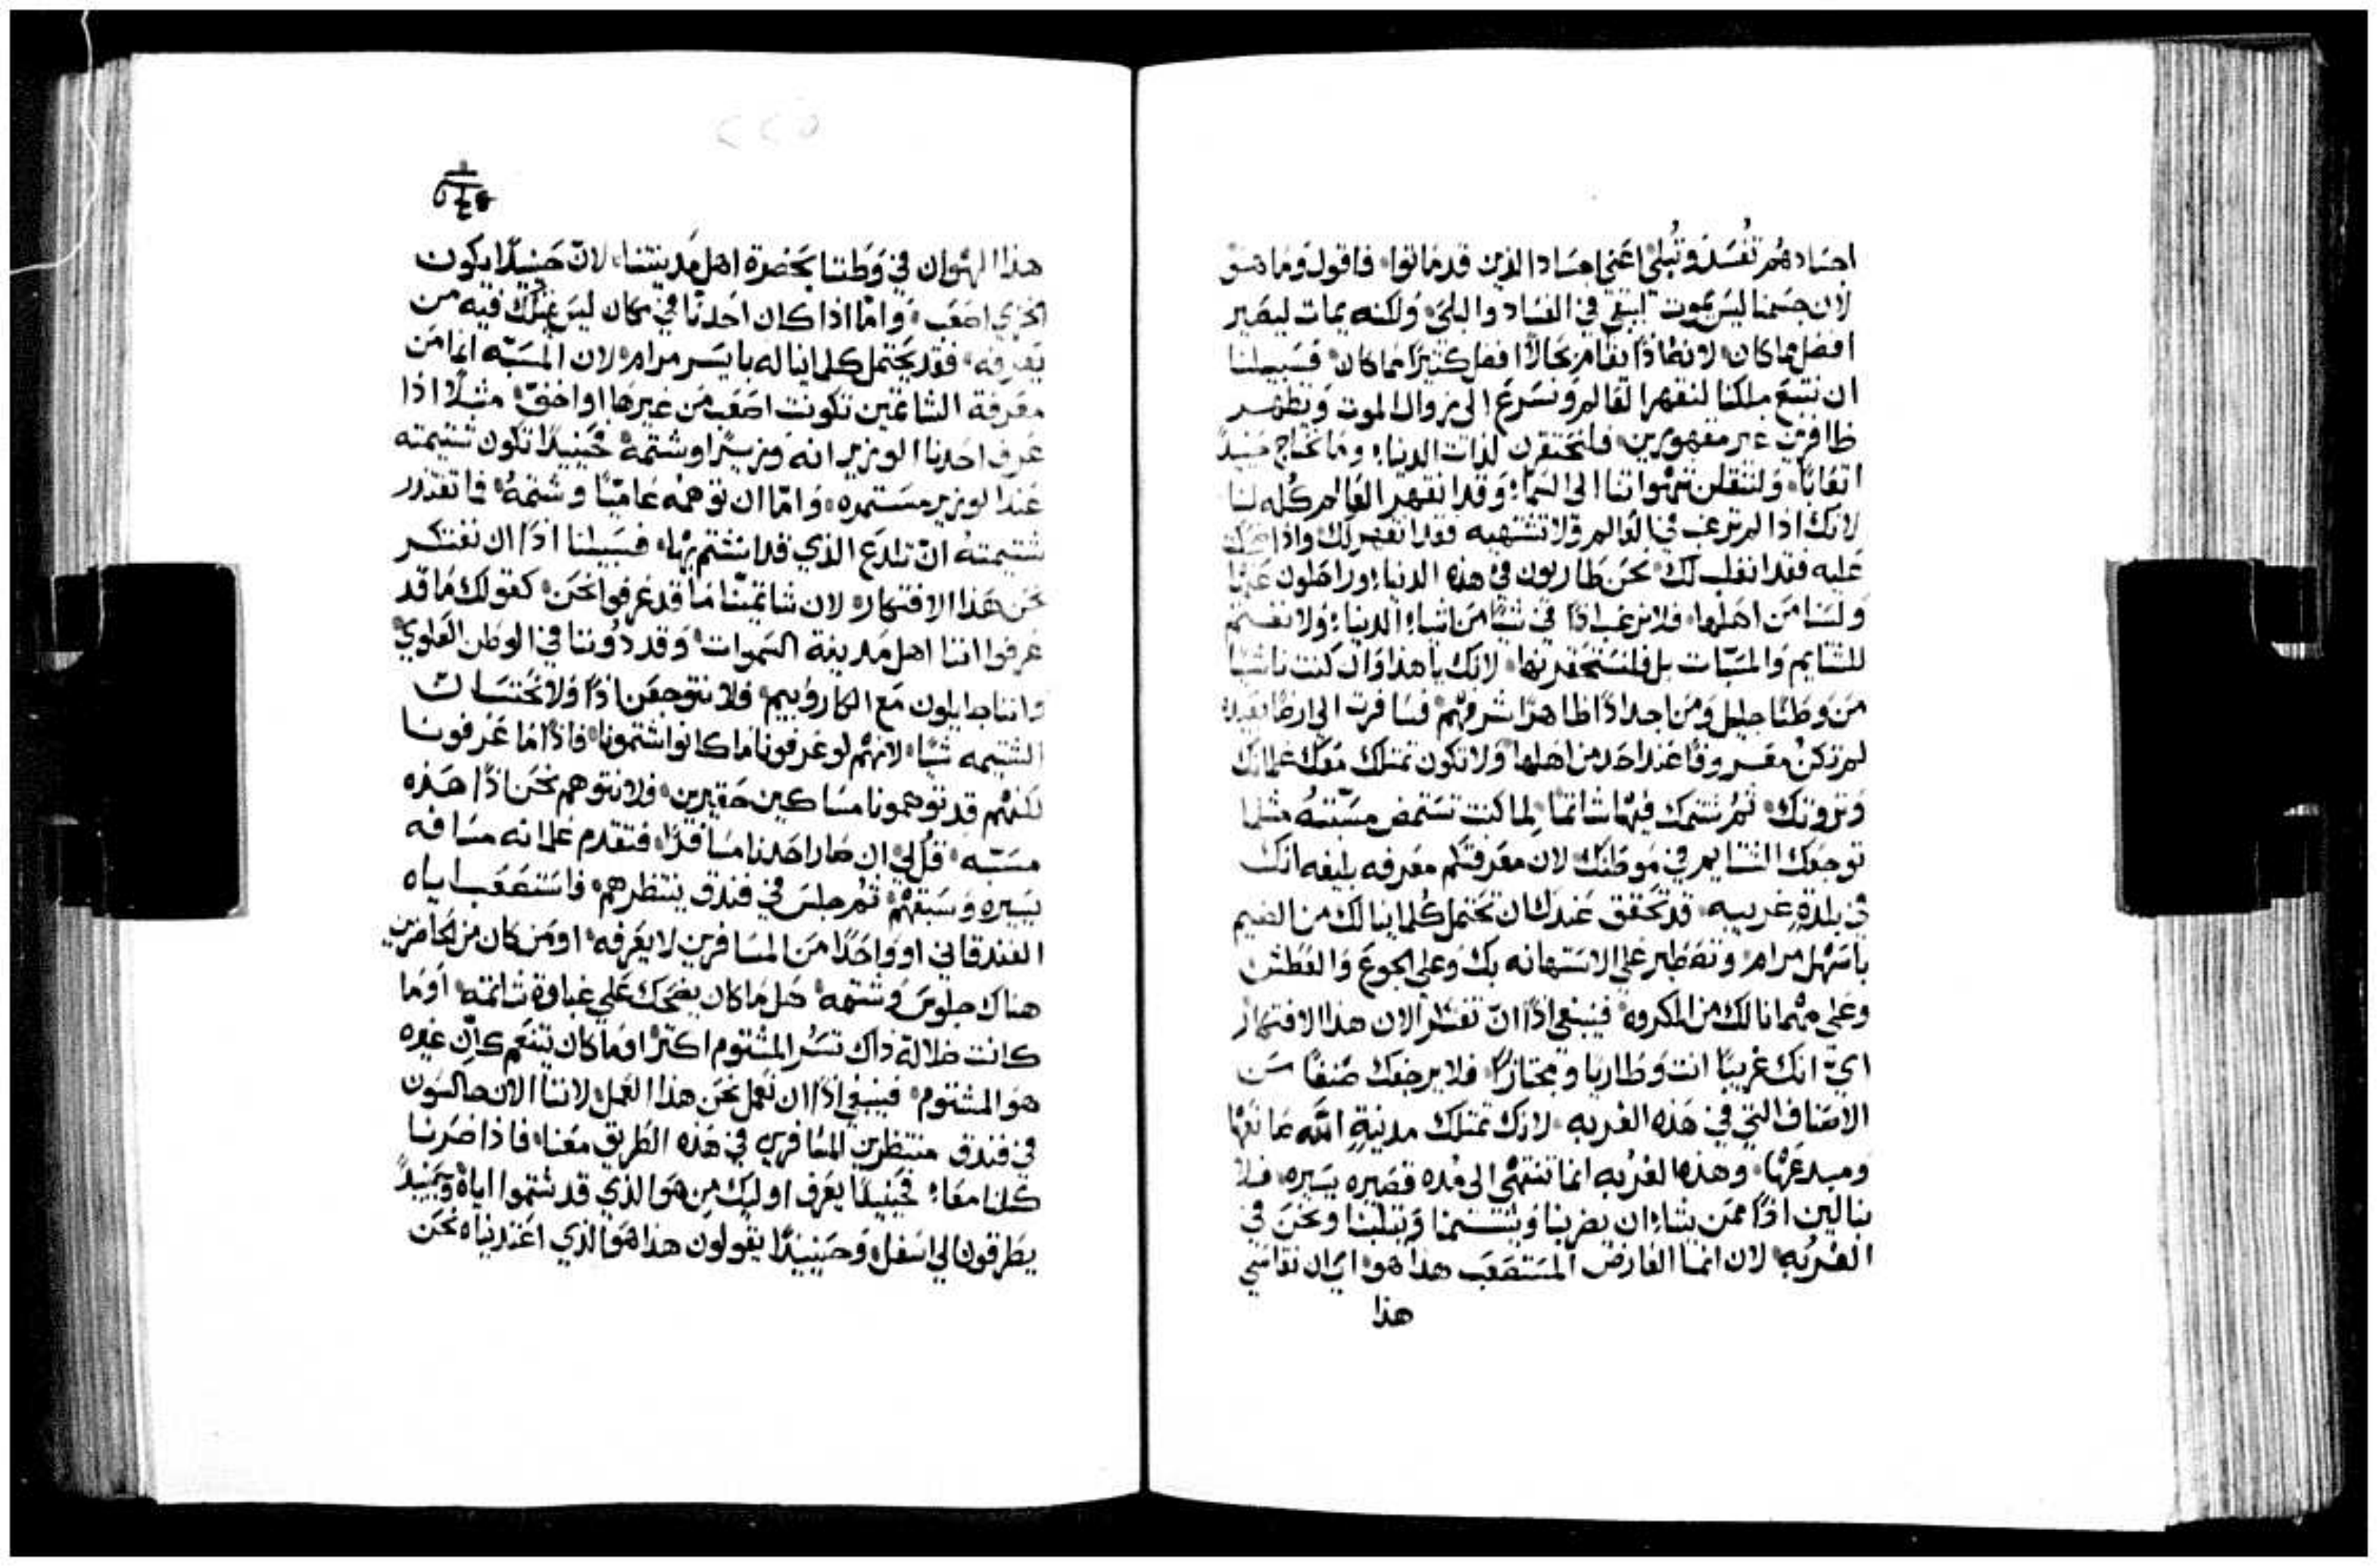 اجسادهم تفسد وتبلي اعني اجساد الذين قد ماتوا، فاقول وما هو
لان جسمنا ليس يموت ليبقي في الفساد والبلي، ولكنه يمات ليصير
افضل مما كان، لانه اذًا تقام حالًا افضل كثيرًا مما كان، فسبيلنا
ان نتبع ملكنا لنقهر العالم ونسرع الي زوال الموت ونظهر
ظافرين غير مقهورين، فلنحتقرن لذات الدنيا، وما نحتاج حينيدً
اتعابًا، ولننقلن شهواتنا الي السما، وقد انقهر العالم كله لنا
لانك اذا لم ترغب في العالم ولا تشتهيه فقد انقهر لك، واذا ضحكت
عليه فقد انغلب لك، نحن طاريون في هذه الدنيا، وراحلون عنها
ولسنا من اهلها، فلا نرغب اذًا في شيًا من اشياء الدنيا، ولا نغتم
للشتايم والمسبات بل فلنستحقرنها، لانك يا هذا وان كنت ناشيًا
من وطنًا جليل ومن اجدادًا ظاهرًا شرفهم، فسافرت الي ارضًا بعيده
لم تكن معروفًا عند احد من اهلها ولا تكون تمتلك معك غلمانك
وثروتك، ثم شتمك فيها شاتمًا، لما كنت تستمض مسبته مثلما
توجعك الشتايم في موطنك، لان معرفتكم معرفه بليغه انك
في بلدةٍ غريبه، قد تحقق عندك ان تحتمل كلما ينالك من الضيم
باسهل مرام، وتصطبر علي الاستهانه بك وعلي الجوع والعطش
وعلي مهما نالك من المكروه، فينبغي اذًا ان تفتكر الان هذا الافتكار
اي انك غريبًا انت وطاريًا ومجتازًا، فلا يرجفك صنفًا من
الاصناف التي في هذه الغربه، لانك تمتلك مدينةٍ الله صانعها
ومبدعها، وهذه الغربه انما تنتهي الي مده قصيره يسيره، فلا
نبالين اذًا ممن يشاء ان يضربنا ويشتمنا ويثلبنا ونحن في
الغربه، لان انما العارض المستصعب هذا هو، اي ان نقاسي
هذا
٢٢٥
هذا الهوان في وطننا بحضرة اهل مدينتنا، لان حينيدًا يكون
الخزي اصعب، واما اذا كان احدنا في مكان ليس يمتلك فيه من
يعرفه، فقد يحتمل كلما يناله بايسر مرام، لان المسبه انما من
معرفة الشاتمين تكونت اصعب من غيرها او اخف، مثلًا اذا
عرف احدنا الوزير انه وزيرًا وشتمه، فحينيدًا تكون شتيمته
عند الوزير مستمره، واما ان توهمه عاميًا وشتمه، فما تقدر
شتيمته ان تلدع الذي قد انشتم بها، فسبيلنا اذًا ان نفتكر
نحن هذا الافتكار، لان شاتمينا ما قد عرفوا نحن، كقولك ما قد
عرفوا اننا اهل مدينة السموات، وقد دوننا في الوطن العلوي
واننا جايلون مع الكاروبيم، فلا نتوجعن اذًا ولا نحتسبان
الشتيمه شيًا، لانهم لو عرفونا ما كانوا شتمونا، فاذًا ما عرفونا
لكنهم قد توهمونا مساكين حقيرين، فلا نتوهم نحن اذًا هذه
مسبه، قل لي ان صار احدنا مسافرًا، فتقدم غلمانه مسافه
يسيره وسبقهم، ثم جلس في فندق ينتظرهم، فاستصعب اياه
الفندقاني او واحدًا من المسافرين لا يعرفه، او من كان من الحاضرين
هناك جلوس وشتمه، هل ما كان يضحك علي غباوة شاتمه، او ما
كانت ضلالة ذاك تسر المشتوم اكثر، او ما كان يتنعم كان غيره
هو المشتوم، فينبغي اذًا ان نعمل نحن هذا العمل، لاننا الان جالسون
في فندق منتظرين المسافرين في هذه الطريق معنا، فاذا صرنا
كلنا معًا، فحينيدًا يعرف اوليك من هو الذي قد شتموا اياه، وحينيدً
يطرقون الي اسفل، وحينيدًا يقولون هذا هو الذي اعتدناه نحن